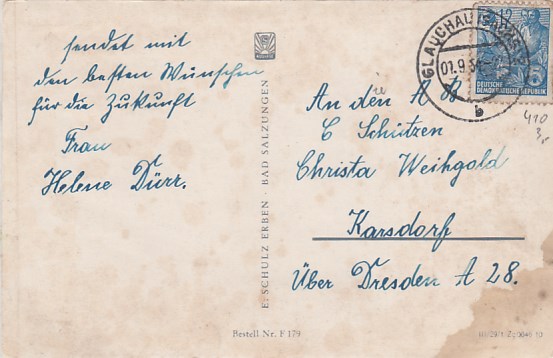 sendet mit
den besten Wünschen
für die Zukunft
Frau
Helene Dürr.
E. SCHULZ ERBEN · BAD SALZUNGEN
Bestell Nr. F 179
GLAUCHAU (SACHS)
01.9.
b
12
DEUTSCHE
DEMOKRATISCHE REPUBLIK
410
3,-
An die A B
C Schützen
Christa Weihgold
Karsdorf
Über Dresden A 28.